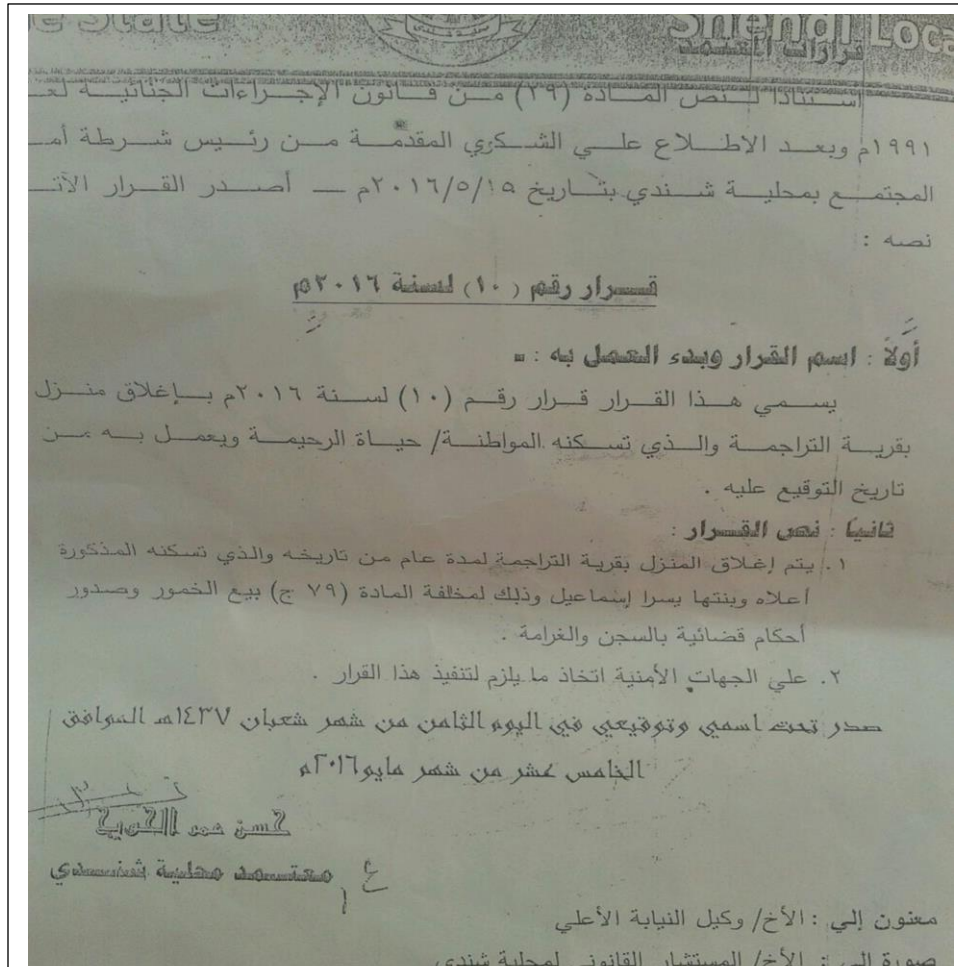 e State
Shendi Loca
قرارات المعتمد
استنادا لنص المادة (٢٩) من قانون الإجراءات الجنائية لعـ
١٩٩١م وبعد الاطلاع علي الشكوي المقدمة من رئيس شرطة أمـ
المجتمع بمحلية شندي بتاريخ ٢٠١٦/٥/١٥م – أصدر القرار الآتـ
نصه :
قرار رقم (١٠) لسنة ٢٠١٦م
أولاً : اسم القرار وبدء العمل به :-
يسمي هذا القرار قرار رقم (١٠) لسنة ٢٠١٦م بإغلاق منزل
بقرية التراجمة والذي تسكنه المواطنة/ حياة الرحيمة ويعمل به من
تاريخ التوقيع عليه .
ثانيا : نص القرار :
١. يتم إغلاق المنزل بقرية التراجمة لمدة عام من تاريخه والذي تسكنه المذكورة
أعلاه وبنتها يسرا إسماعيل وذلك لمخالفة المادة (٧٩ ج) بيع الخمور وصدور
أحكام قضائية بالسجن والغرامة .
٢. علي الجهات الأمنية اتخاذ ما يلزم لتنفيذ هذا القرار .
صدر تحت اسمي وتوقيعي في اليوم الثامن من شهر شعبان ١٤٣٧هـ الموافق
الخامس عشر من شهر مايو٢٠١٦م
حسن عمر الحويج
ع/ معتمد محلية شندي
معنون إلي : الأخ/ وكيل النيابة الأعلي
صورة إلي : الأخ/ المستشار القانوني لمحلية شندي